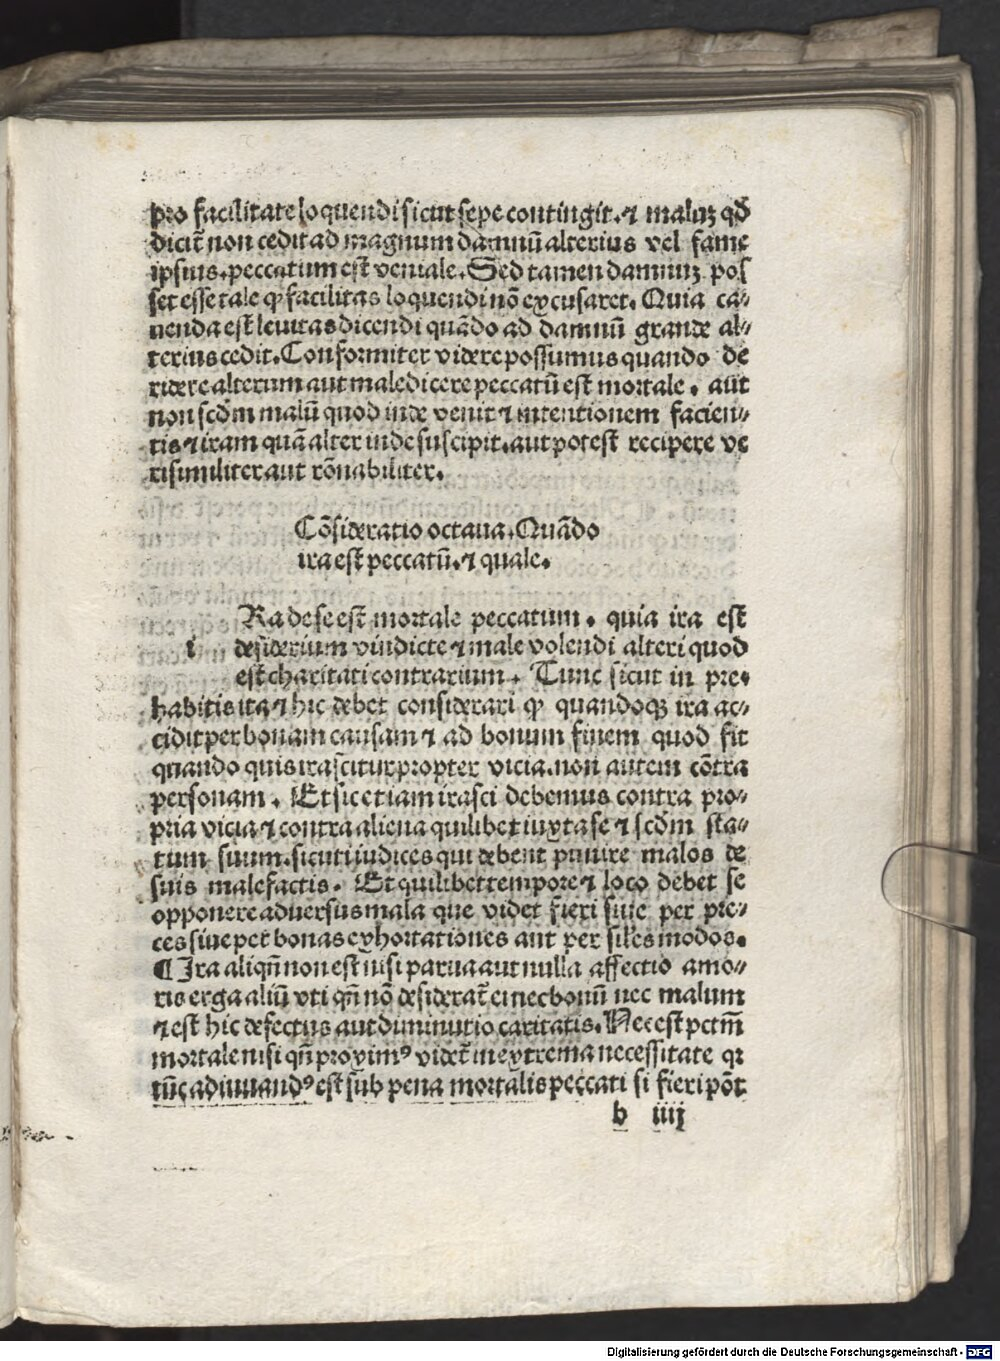 pro facilitate loquendi sicut sepe contingit. ⁊ maluꝫ qđ
dicit̃ non cedit ad magnum damnũ alterius vel fame
ipsius. peccatum est veniale. Sed tamen damnuꝫ pos
set esse tale ꝙ facilitas loquendi nõ excusaret. Quia ca⸗
uenda est leuitas dicendi quãdo ad damnũ grande al⸗
terius cedit. Conformiter videre possumus quando de
ridere alterum aut maledicere peccatũ est mortale. aut
non scđm malũ quod inde venit ⁊ intentionem facien⸗
tis ⁊ iram quã alter inde suscipit. aut potest recipere ve
risimiliter aut rõnabiliter.
Cõsideratio octaua. Quãdo
ira est peccatũ. ⁊ quale.
i Ra de se est mortale peccatum. quia ira est
desiderium vindicte ⁊ male volendi alteri quod
est charitati contrarium. Tunc sicut in pre⸗
habitis ita ⁊ hic debet considerari ꝙ quandoqꝫ ira ac⸗
cidit per bonam causam ⁊ ad bonum finem quod fit
quando quis irascitur propter vicia. non autem cõtra
personam. Et sic etiam irasci debemus contra pro⸗
pria vicia ⁊ contra aliena quilibet iuxta se ⁊ scđm sta⸗
tum suum. sicuti iudices qui debent punire malos de
suis malefactis. Et quilibet tempore ⁊ loco debet se
opponere aduersus mala que videt fieri siue per pre⸗
ces siue per bonas exhortationes aut per siles modos.
¶ Ira aliqñ non est nisi parua aut nulla affectio amo⸗
ris erga aliũ vti qñ nõ desiderat̃ ei nec bonũ nec malum
⁊ est hic defectus aut diminutio caritatis. Nec est pctm̃
mortale nisi qñ proximꝰ videt̃ in extrema necessitate qꝛ
tũc adiuuandꝰ est sub pena mortalis peccati si fieri põt
b iiij
Digitalisierung gefördert durch die Deutsche Forschungsgemeinschaft - DFG